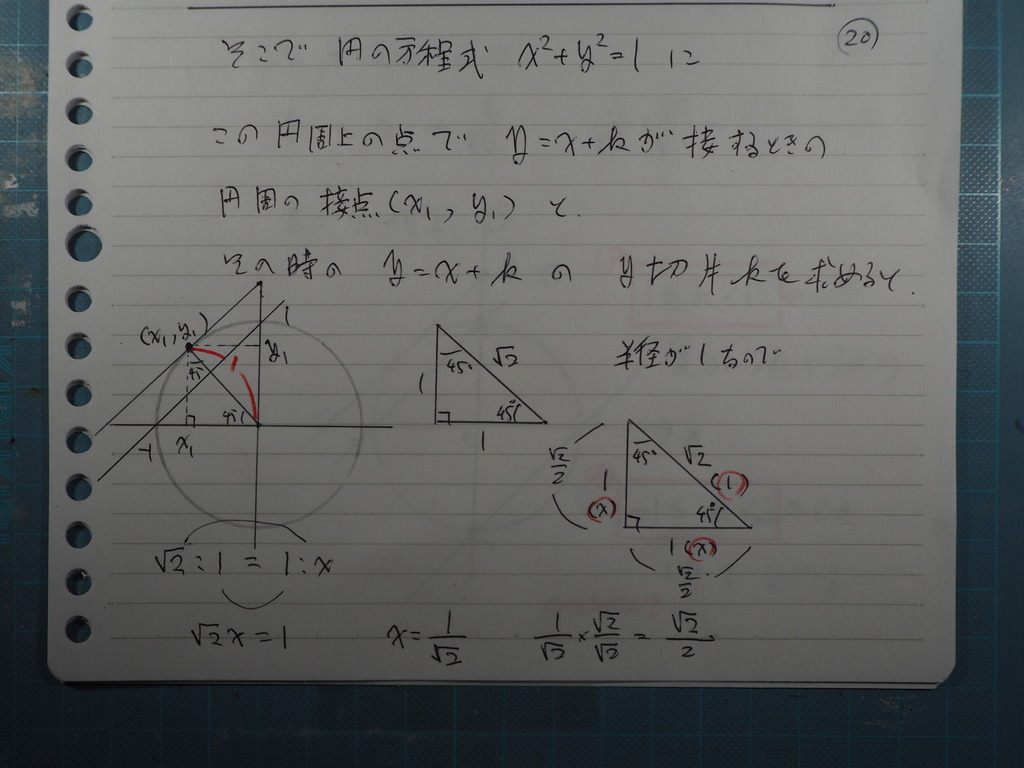 ⑳
そこで 円の方程式 x²+y²=1 に
この円周上の点で y=x+kが接するときの
円周の接点(x₁, y₁)と、
その時の y=x+k の y切片kを求めると、
(x₁, y₁)
1
y₁
1
45
45°
x₁
-1
45°
√2
1
45°
1
半径が1なので
√2/2
45°
√2
(1)
1
(x)
45°
1(x)
√2/2
√2:1=1:x
√2x=1 x=1/√2 1/√2×√2/√2=√2/2